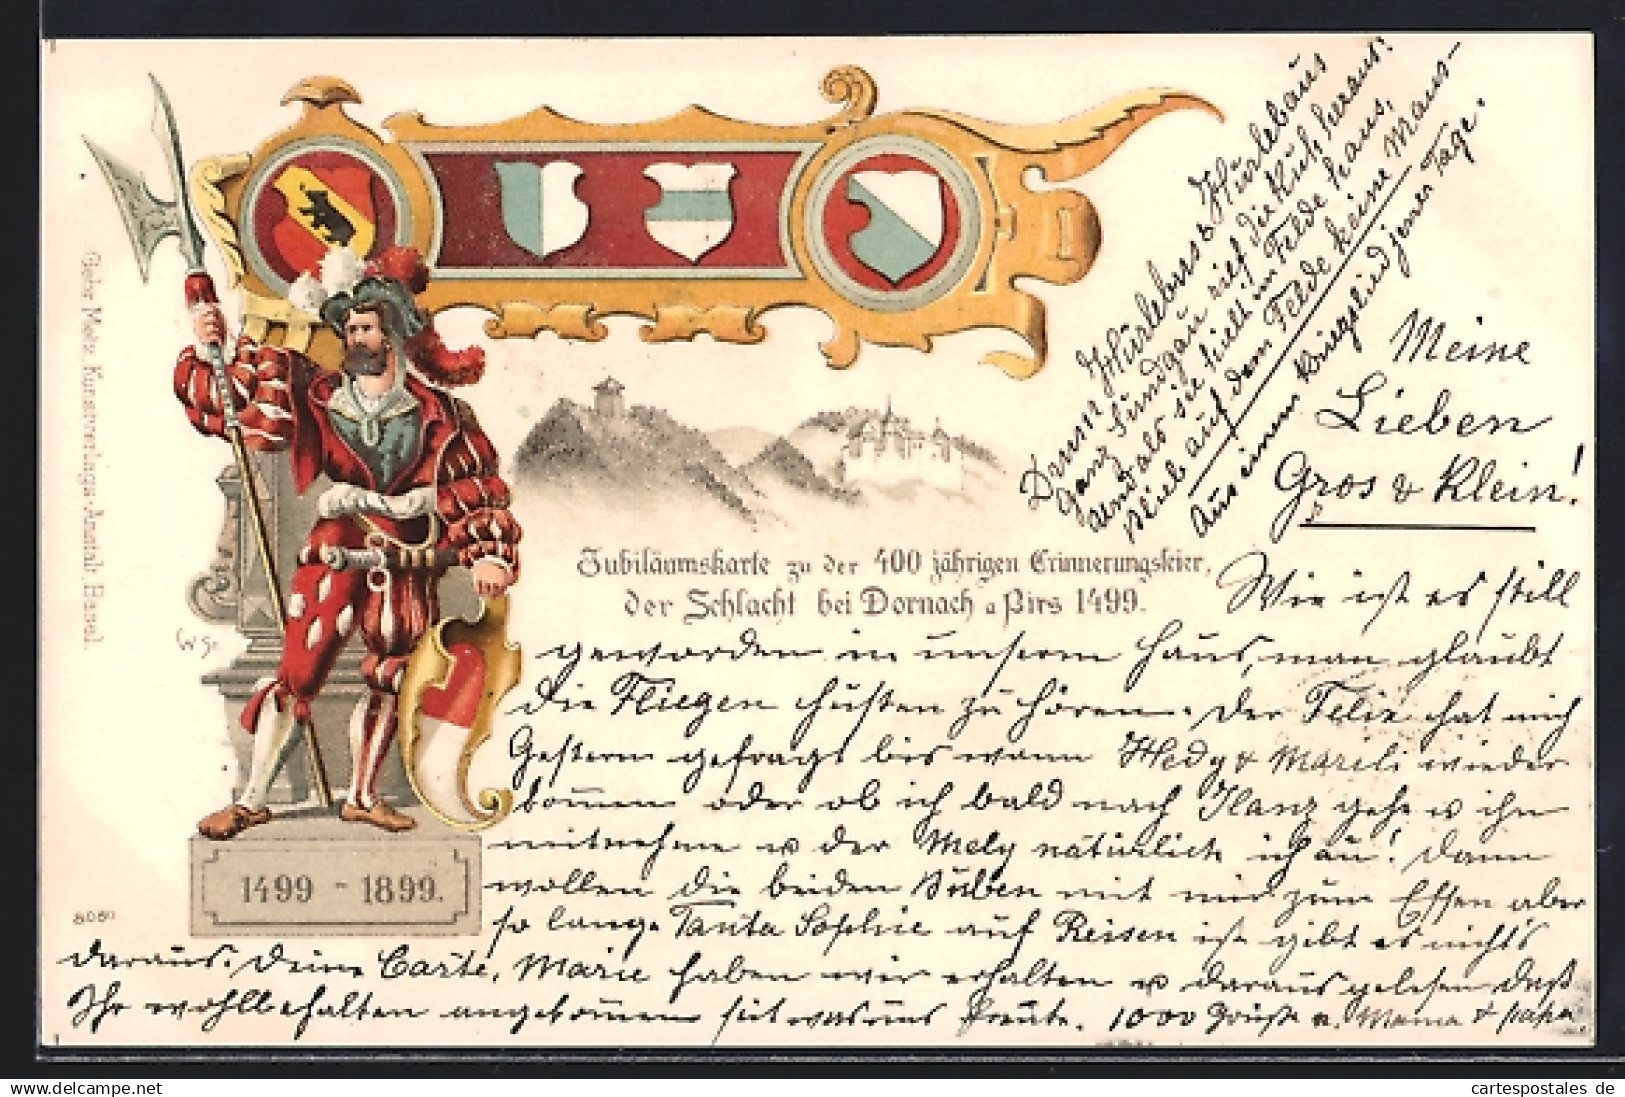 Drum Hürlebus & Hürlebaus
Ganz Sundgau rief die Kuh heraus!
und als sie hielt im Felde haus,
Blieb auf dem Felde keine Maus —
Aus einem Kriegslied jener Tage.
Meine
Lieben
Gros & Klein!
Jubiläumskarte zu der 400 jährigen Erinnerungsfeier,
der Schlacht bei Dornach a Birs 1499.
Wie ist es still
geworden in unserm Haus, man glaubt
die Fliegen husten zu hören. Der Felix hat mich
Gestern gefragt bis wann Hedy & Marili wieder
kommen oder ob ich bald nach Ilanz gehe u ihn
mitnehme u der Mely natürlich ich au! Dann
wollen die beiden Buben mit mir zum Essen aber
so lange Tanta Sophie auf Reisen ist gibt es nichts
daraus. Deine Carte, Marie haben wir erhalten u daraus gelesen daß
Ihr wohlbehalten angekommen seit was uns freute. 1000 Grüße v. Mama & papa
Gebr. Metz, Kunstverlags-Anstalt, Basel.
W Sr.
1499 - 1899.
8080
www.delcampe.net
cartespostales de